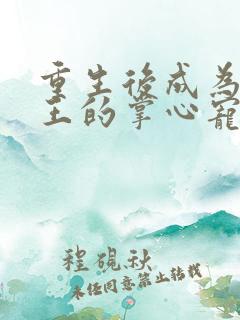 重生後成為
王的掌心寵
程硯秋
未经同意禁止转载